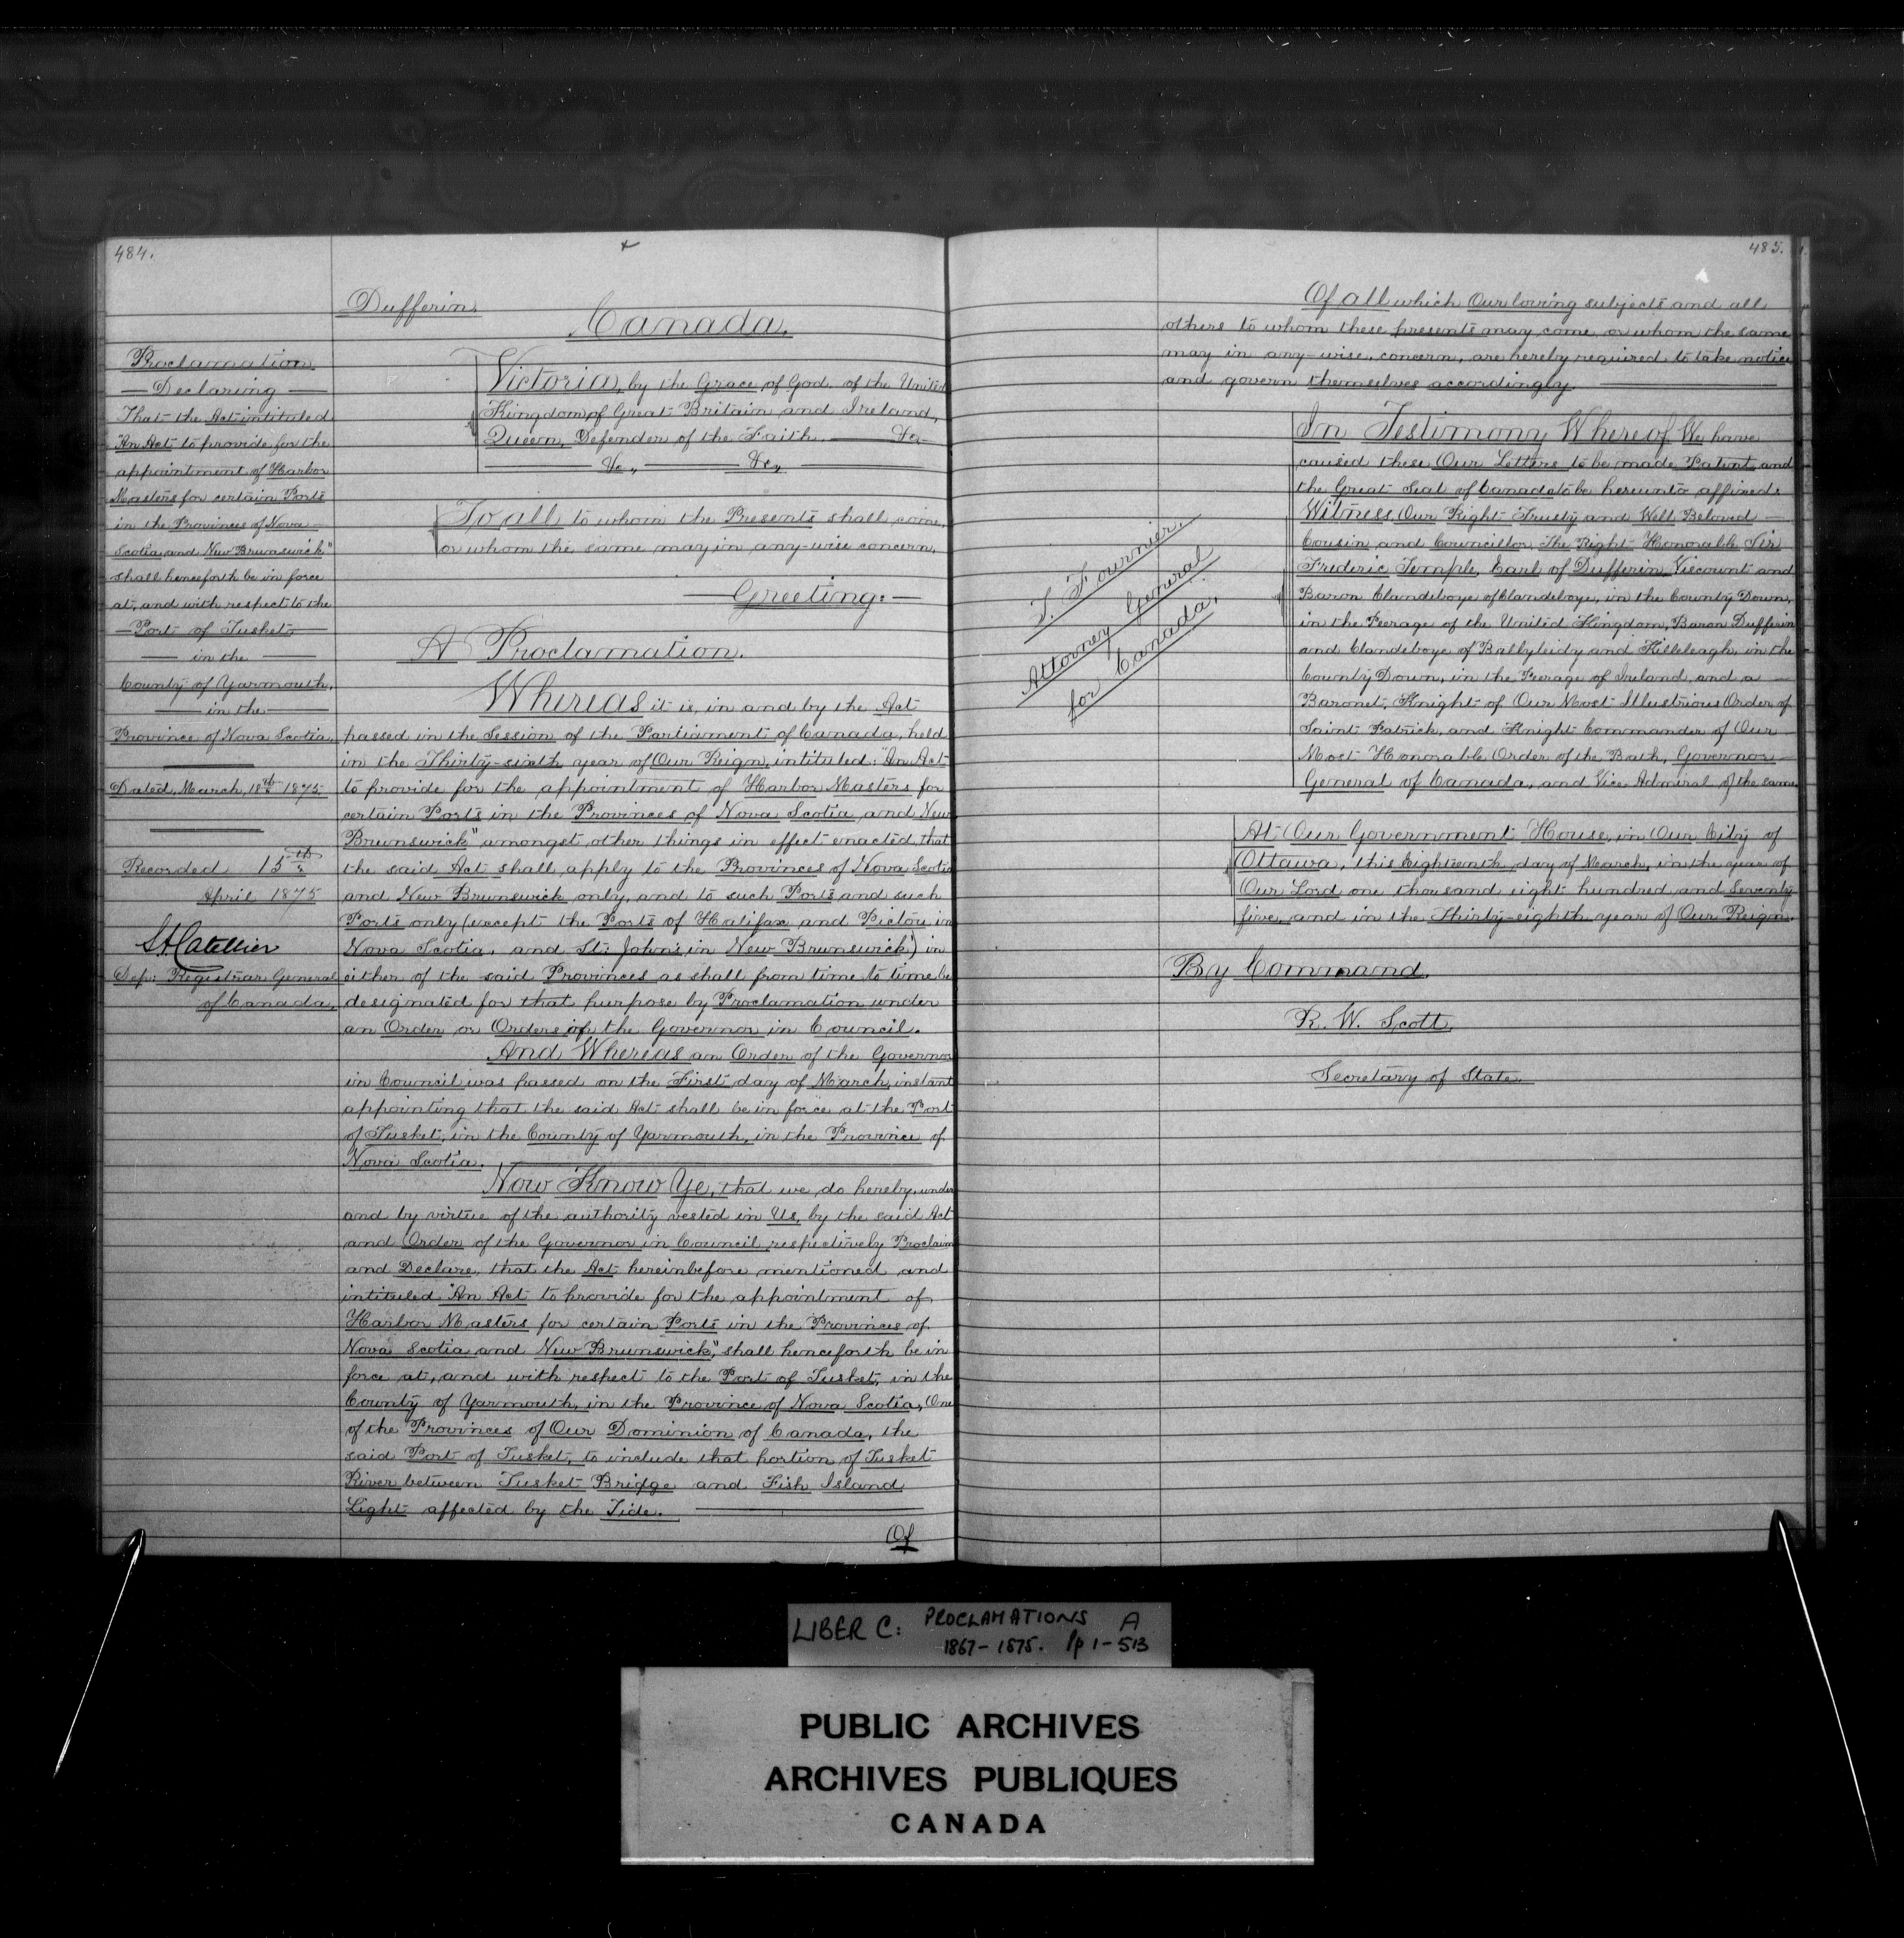 484.
Dufferin.
Canada.
Proclamation
Declaring
That the Act intituled
"An Act to provide for the
appointment of Harbor
Masters for certain Ports
in the Provinces of Nova
Scotia, and New Brunswick"
shall henceforth be in force
at, and with respect to the
Port of Tusket
in the
County of Yarmouth,
in the
Province of Nova Scotia.
Dated, March, 18th 1875.
Recorded 15th
April 1875
L. A. Catellier
Dep: Registrar General
of Canada.
Victoria, by the Grace of God, of the United
Kingdom of Great Britain and Ireland,
Queen, Defender of the Faith. &c
&c, &c,
To all to whom the Presents shall come,
or whom the same may in any-wise concern,
Greeting:
A Proclamation.
Whereas it is, in and by the Act
passed in the Session of the Parliament of Canada, held
in the Thirty-sixth year of Our Reign, intituled: "An Act
to provide for the appointment of Harbor Masters for
certain Ports in the Provinces of Nova Scotia and New
Brunswick" amongst other things in effect enacted, that
the said Act shall, apply to the Provinces of Nova Scotia
and New Brunswick only, and to such Ports and such
Ports only (except the Ports of Halifax and Pictou in
Nova Scotia, and St: John's in New Brunswick) in
either of the said Provinces as shall from time to time be
designated for that purpose by Proclamation under
an Order or Orders of the Governor in Council.
And Whereas an Order of the Governor
in Council was passed on the First day of March, instant
appointing that the said Act shall be in force at the Port
of Tusket, in the County of Yarmouth, in the Province of
Nova Scotia.
Now Know Ye, that we do hereby, under
and by virtue of the authority vested in Us, by the said Act
and Order of the Governor in Council, respectively Proclaim
and Declare, that the Act hereinbefore mentioned and
intituled "An Act to provide for the appointment of
Harbor Masters for certain Ports in the Provinces of
Nova Scotia and New Brunswick", shall henceforth be in
force at, and with respect to the Port of Tusket, in the
County of Yarmouth, in the Province of Nova Scotia, One
of the Provinces of Our Dominion of Canada, the
said Port of Tusket, to include that portion of Tusket
River between Tusket Bridge and Fish Island
Light affected by the Tide.
Of
485.
Of all which Our loving subjects and all
others to whom these presents may come or whom the same
may in any-wise, concern, are hereby required to take notice
and govern themselves accordingly.
T. Fournier,
Attorney General
for Canada,
In Testimony Whereof We have
caused these Our Letters to be made Patent and
the Great Seal of Canada to be hereunto affixed:
Witness Our Right Trusty and Well Beloved
Cousin and Councillor The Right Honorable Sir
Frederic Temple, Earl of Dufferin, Viscount and
Baron Clandeboye of Clandeboye, in the County Down,
in the Peerage of the United Kingdom, Baron Dufferin
and Clandeboye of Ballyleidy and Killeleagh, in the
County Down, in the Peerage of Ireland, and a
Baronet, Knight of Our Most Illustrious Order of
Saint Patrick, and Knight Commander of Our
Most Honorable Order of the Bath, Governor
General of Canada, and Vice Admiral of the same.
At Our Government House, in Our City of
Ottawa, this Eighteenth day of March, in the year of
Our Lord one thousand eight hundred and Seventy
five, and in the Thirty-eighth year of Our Reign.
By Command.
R. W. Scott.
Secretary of State.
LIBER C: PROCLAMATIONS A
1867-1875. Pp 1-513
PUBLIC ARCHIVES
ARCHIVES PUBLIQUES
CANADA